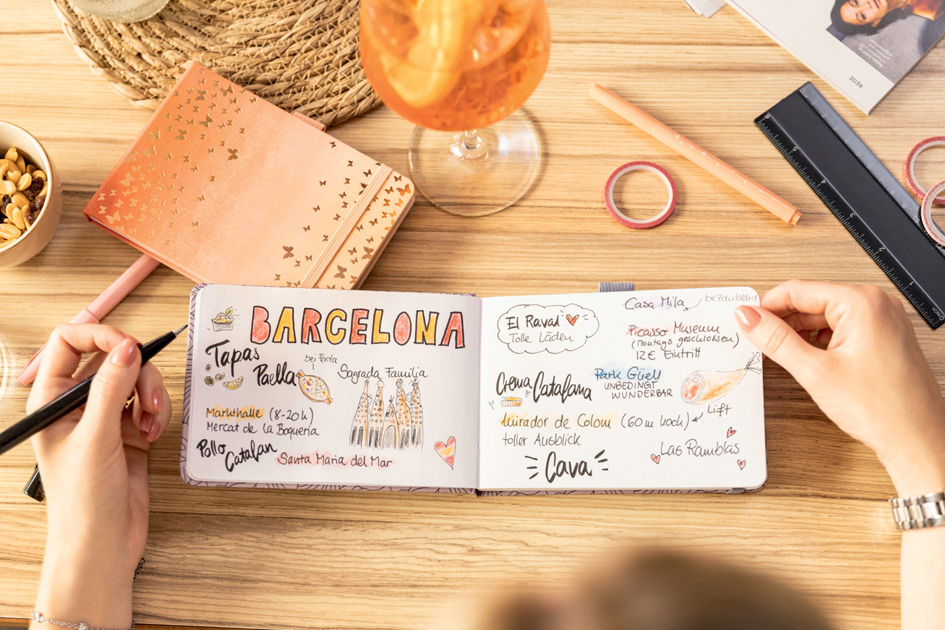 BARCELONA
Tapas
bei Paola
Paella
Sagrada Familia
Markthalle (8-20h)
Mercat de la Boqueria
Pollo Catalan
Santa Maria del Mar
El Raval
Tolle Läden
Casa Mila, bezaubernd
Picasso Museum
(Montags geschlossen)
12€ Eintritt
Crema Catalana
Park Güell
UNBEDINGT
WUNDERBAR
Mirador de Colom (60m hoch) Lift
toller Ausblick
Las Ramblas
Cava
REISE